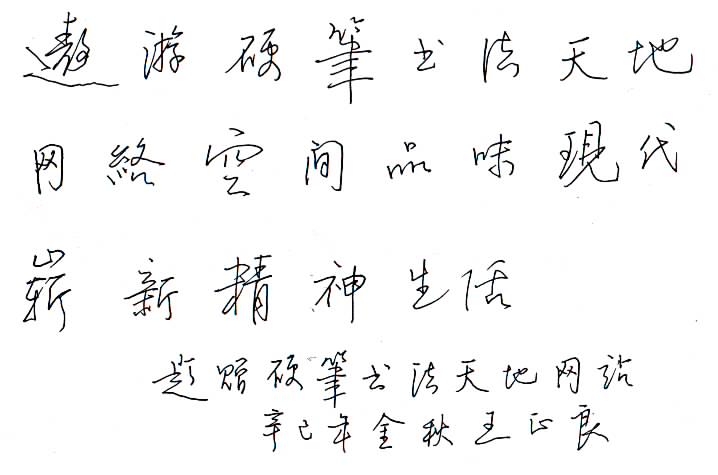 遨游硬筆书法天地
网絡空间品味現代
嶄新精神生活
题赠硬筆书法天地网站
辛巳年金秋王正良